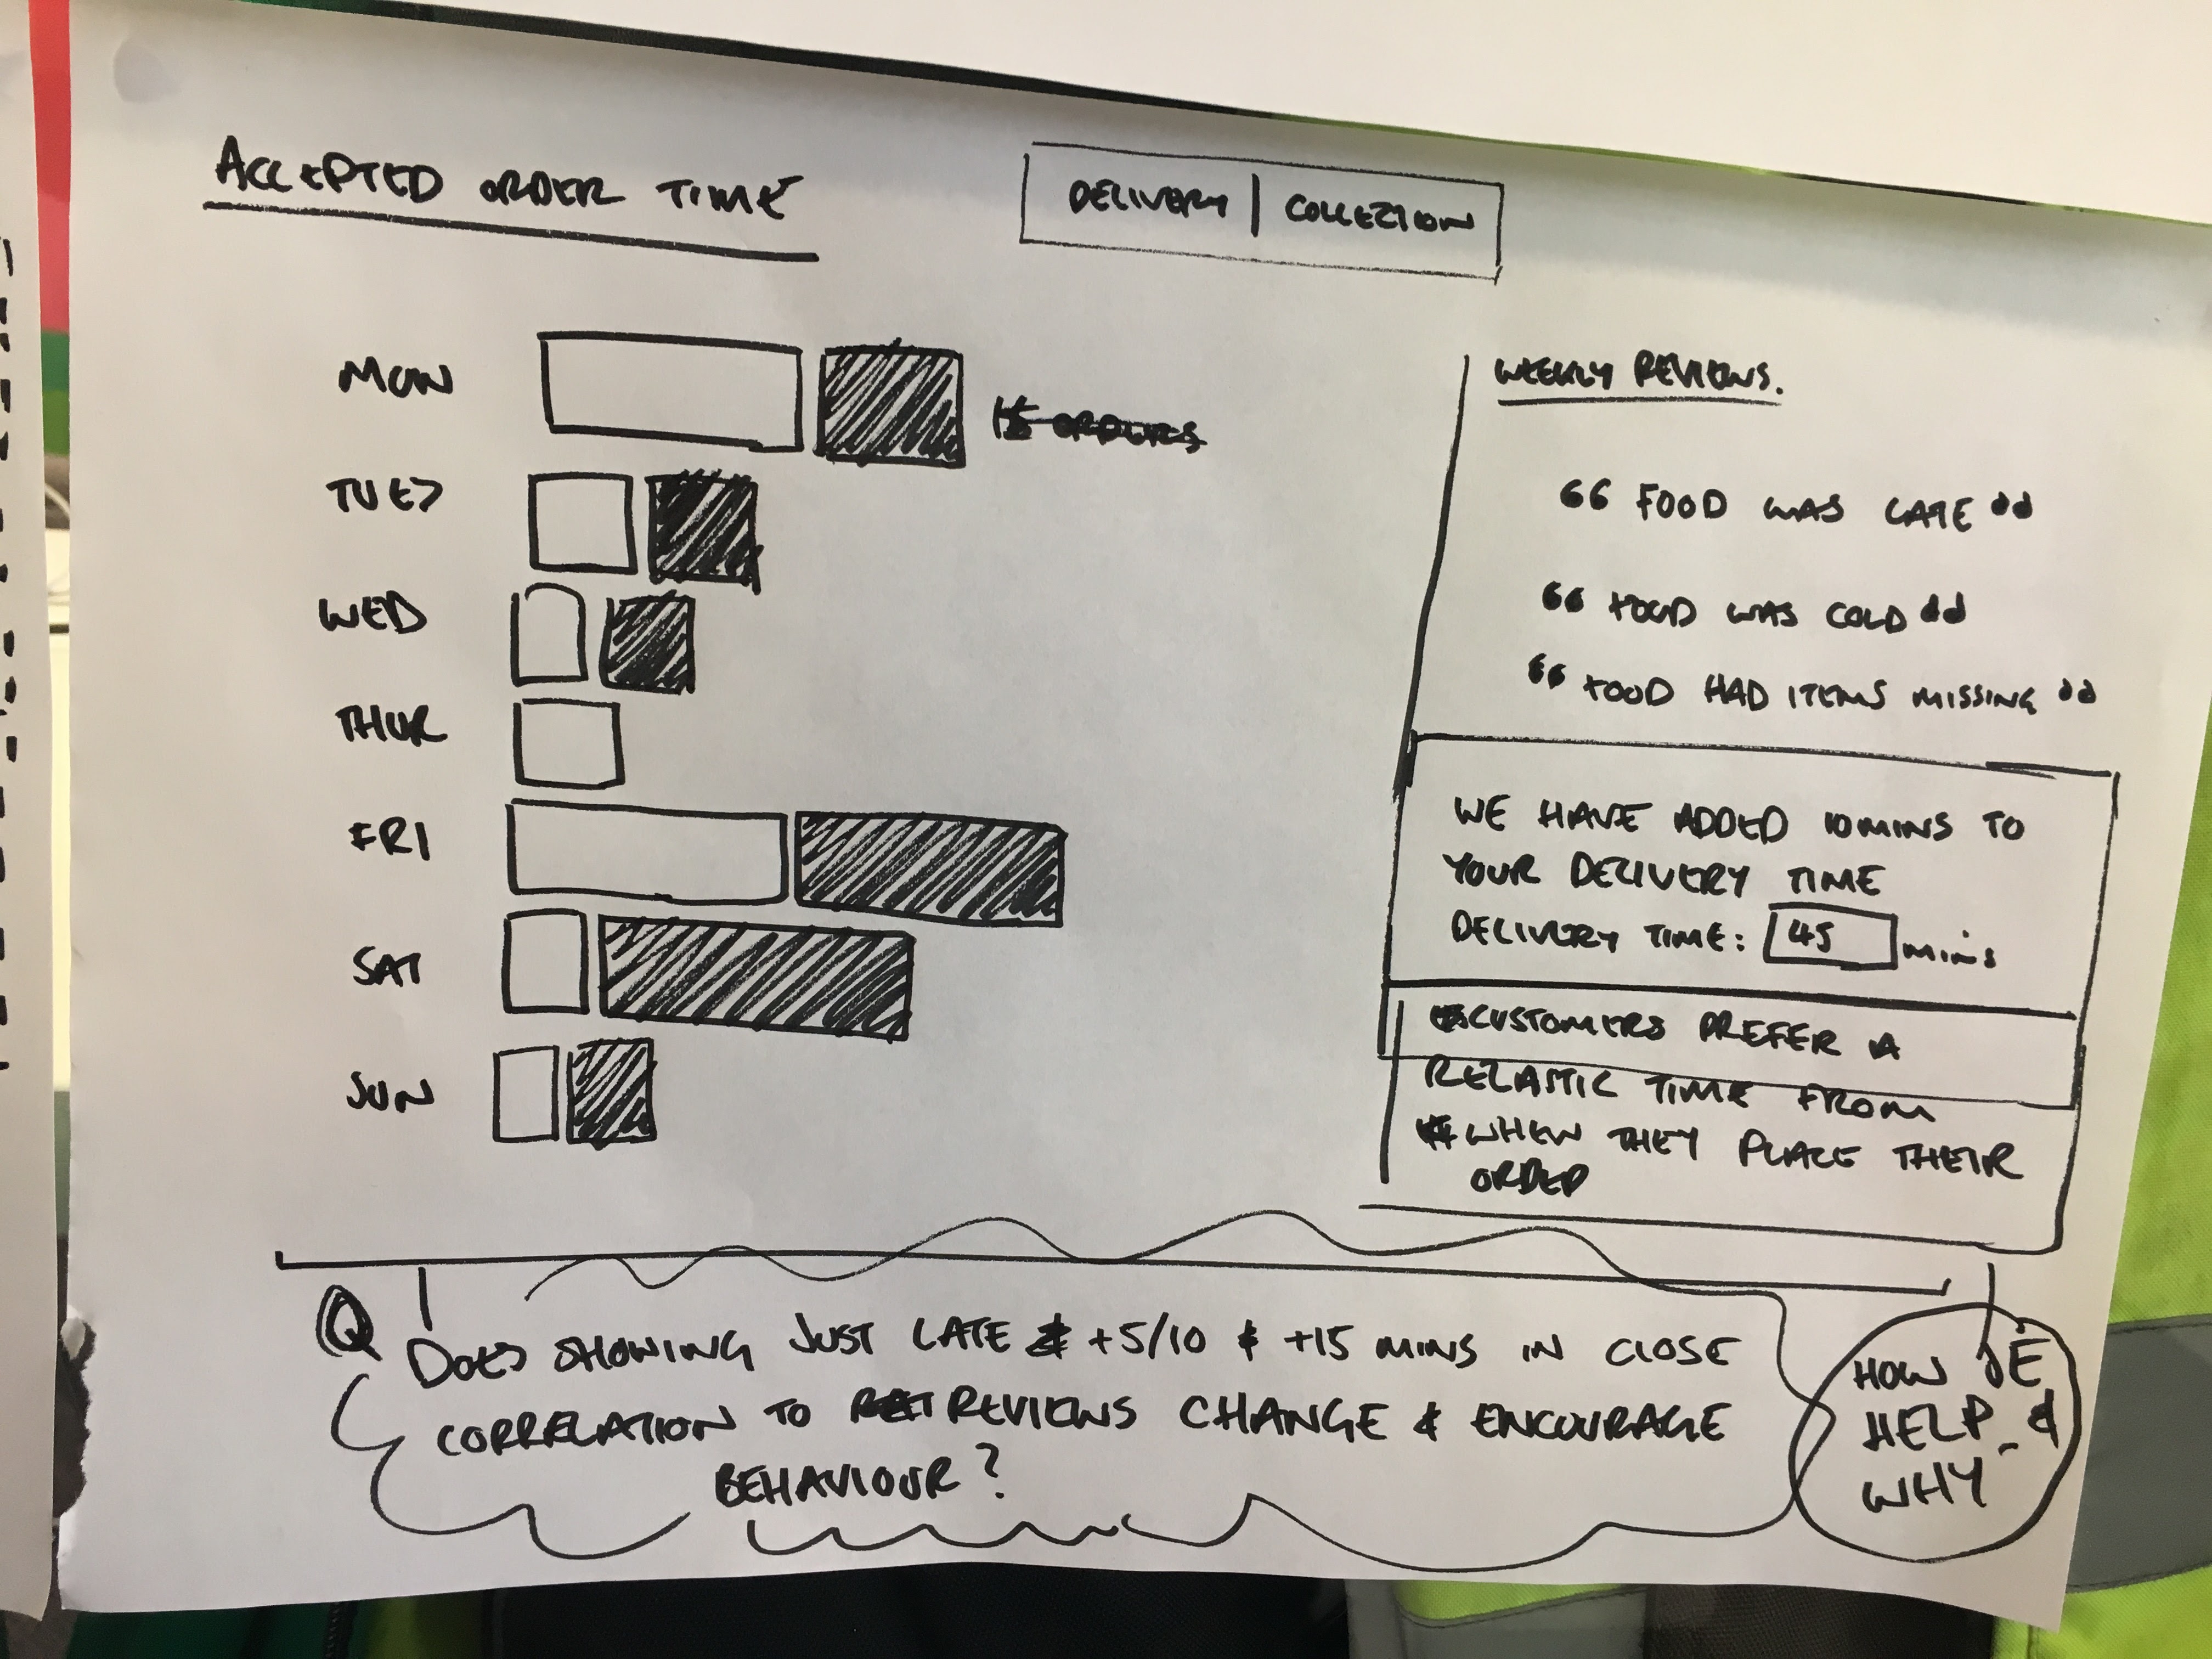 ACCEPTED ORDER TIME
DELIVERY | COLLECTION
MON
TUES
WED
THUR
FRI
SAT
SUN
WEEKLY REVIEWS.
“ FOOD WAS LATE ”
“ FOOD WAS COLD ”
“ FOOD HAD ITEMS MISSING ”
WE HAVE ADDED 10 MINS TO
YOUR DELIVERY TIME
DELIVERY TIME: 45 mins
CUSTOMERS PREFER A
RELASTIC TIME FROM
WHEN THEY PLACE THEIR
ORDER
Q DOES SHOWING JUST LATE & +5/10 & +15 MINS IN CLOSE
CORRELATION TO REVIEWS CHANGE & ENCOURAGE
BEHAVIOUR?
HOW
HELP &
WHY